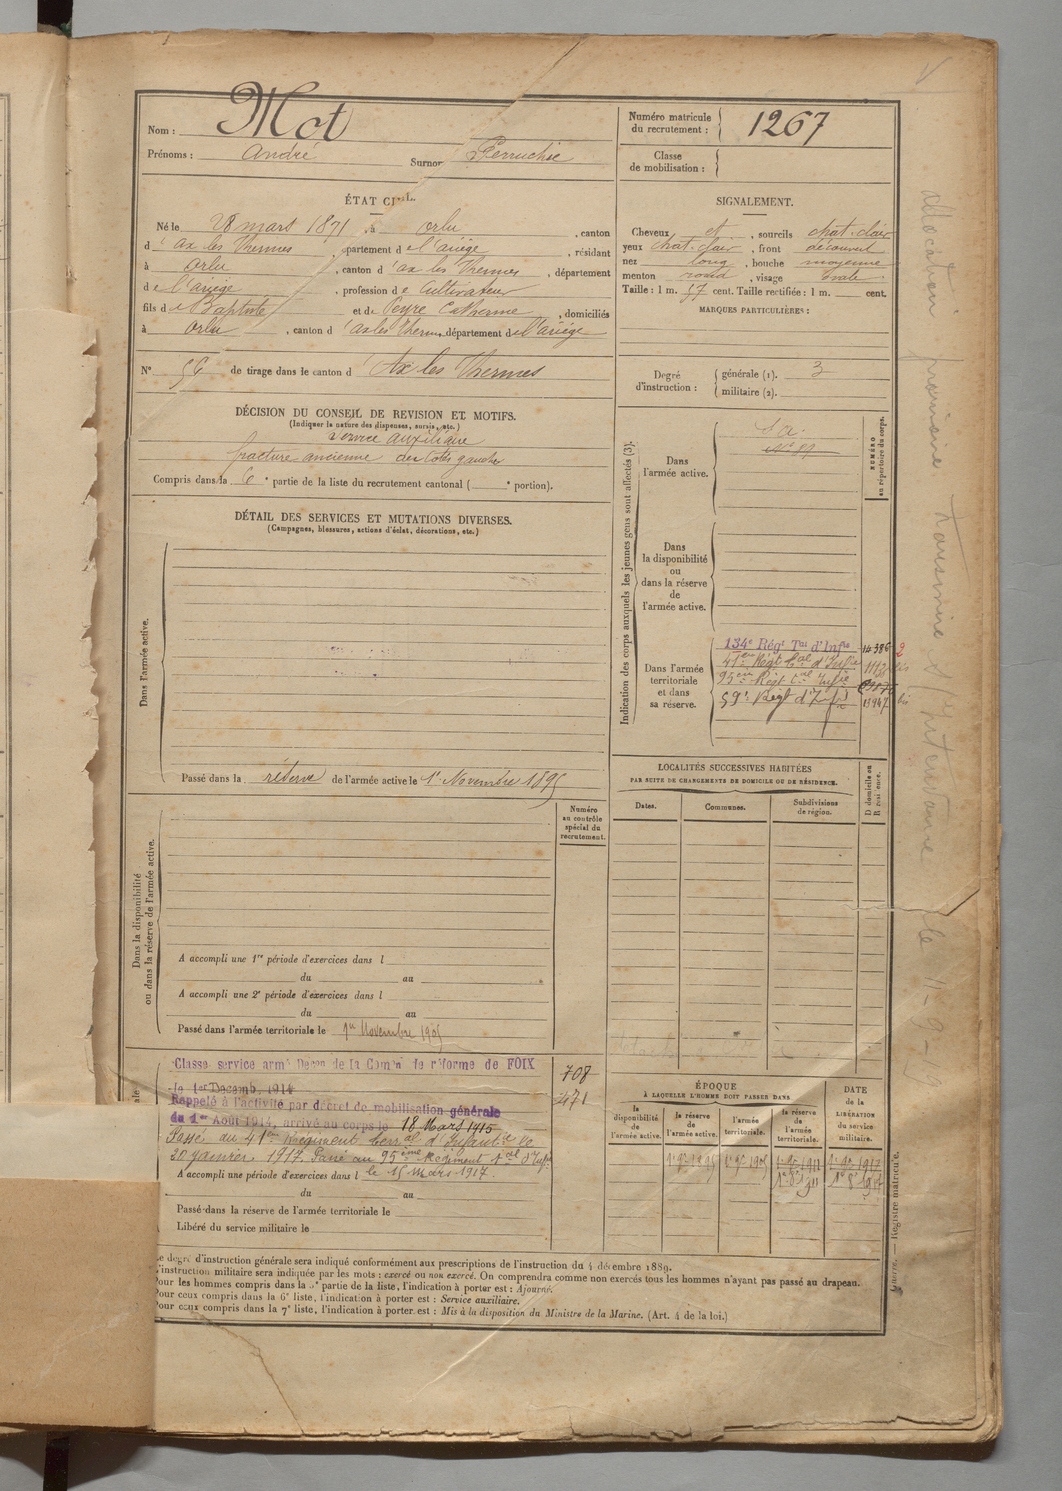 Nom : Mot
Prénoms : André Surnom Perruchie
Numéro matricule du recrutement : 1267
Classe de mobilisation :
ÉTAT CIVIL.
Né le 28 mars 1871, à Orlu, canton
d'Ax les Thermes, département de l'ariège, résidant
à Orlu, canton d'ax les Thermes, département
de l'ariège, profession de Cultivateur
fils de Baptiste et de Peyre Catherine, domiciliés
à Orlu, canton d'ax les Thermes département de l'ariège
N° 56 de tirage dans le canton d'Ax les Thermes
SIGNALEMENT.
Cheveux et, sourcils chat. clair
yeux chat. clair, front découvert
nez long, bouche moyenne
menton rond, visage ovale
Taille : 1 m. 57 cent. Taille rectifiée : 1 m. cent.
MARQUES PARTICULIÈRES :
Degré d'instruction :
générale (1). 3
militaire (2).
DÉCISION DU CONSEIL DE REVISION ET MOTIFS.
(Indiquer la nature des dispenses, sursis, etc.)
Service auxiliaire
fracture ancienne des côtes gauches
Compris dans la 6e partie de la liste du recrutement cantonal (e portion).
DÉTAIL DES SERVICES ET MUTATIONS DIVERSES.
(Campagnes, blessures, actions d'éclat, décorations, etc.)
Dans l'armée active.
Passé dans la réserve de l'armée active le 1er Novembre 1895
Indication des corps auxquels les jeunes gens sont affectés (3).
NUMÉRO au répertoire du corps.
Dans l'armée active.
S. a.
N° 89
Dans la disponibilité ou dans la réserve de l'armée active.
Dans l'armée territoriale et dans sa réserve.
134e Régt Tal d'Infie 14386 2
41eme Régt tal d'Infie 1112 bis
95eme Régt tal Infie
59e Régt d'Infie 13947 bis
LOCALITÉS SUCCESSIVES HABITÉES
PAR SUITE DE CHANGEMENTS DE DOMICILE OU DE RÉSIDENCE.
Dates. Communes. Subdivisions de région.
D domicile ou R résidence.
Numéro au contrôle spécial du recrutement.
Dans la disponibilité ou dans la réserve de l'armée active.
A accompli une 1re période d'exercices dans l
du au
A accompli une 2e période d'exercices dans l
du au
Passé dans l'armée territoriale le 1er Novembre 1905
Classe service armé Décon de la Comon de réforme de FOIX
le 1er Décemb. 1914
Rappelé à l'activité par décret de mobilisation générale
du 1er Août 1914, arrivé au corps le 18 Mars 1915
Passé au 41eme Régiment terral d'Infantie le
20 janvier 1917. Passé au 95eme Régiment tal d'Infie
A accompli une période d'exercices dans l le 15 mars 1917
du au
Passé dans la réserve de l'armée territoriale le
Libéré du service militaire le
708
471
ÉPOQUE
À LAQUELLE L'HOMME DOIT PASSER DANS
la disponibilité de l'armée active.
la réserve de l'armée active.
l'armée territoriale.
la réserve de l'armée territoriale.
DATE de la LIBÉRATION du service militaire.
1er 9bre 1895 1er 9bre 1905 1er 9bre 1911 1er 9bre 1917
Le degré d'instruction générale sera indiqué conformément aux prescriptions de l'instruction du 4 décembre 1889.
L'instruction militaire sera indiquée par les mots : exercé ou non exercé. On comprendra comme non exercés tous les hommes n'ayant pas passé au drapeau.
Pour les hommes compris dans la 5e partie de la liste, l'indication à porter est : Ajourné.
Pour ceux compris dans la 6e liste, l'indication à porter est : Service auxiliaire.
Pour ceux compris dans la 7e liste, l'indication à porter est : Mis à la disposition du Ministre de la Marine. (Art. 4 de la loi.)
Guerre. — Registre matricule.
allocation transmise intendance le 11-9-